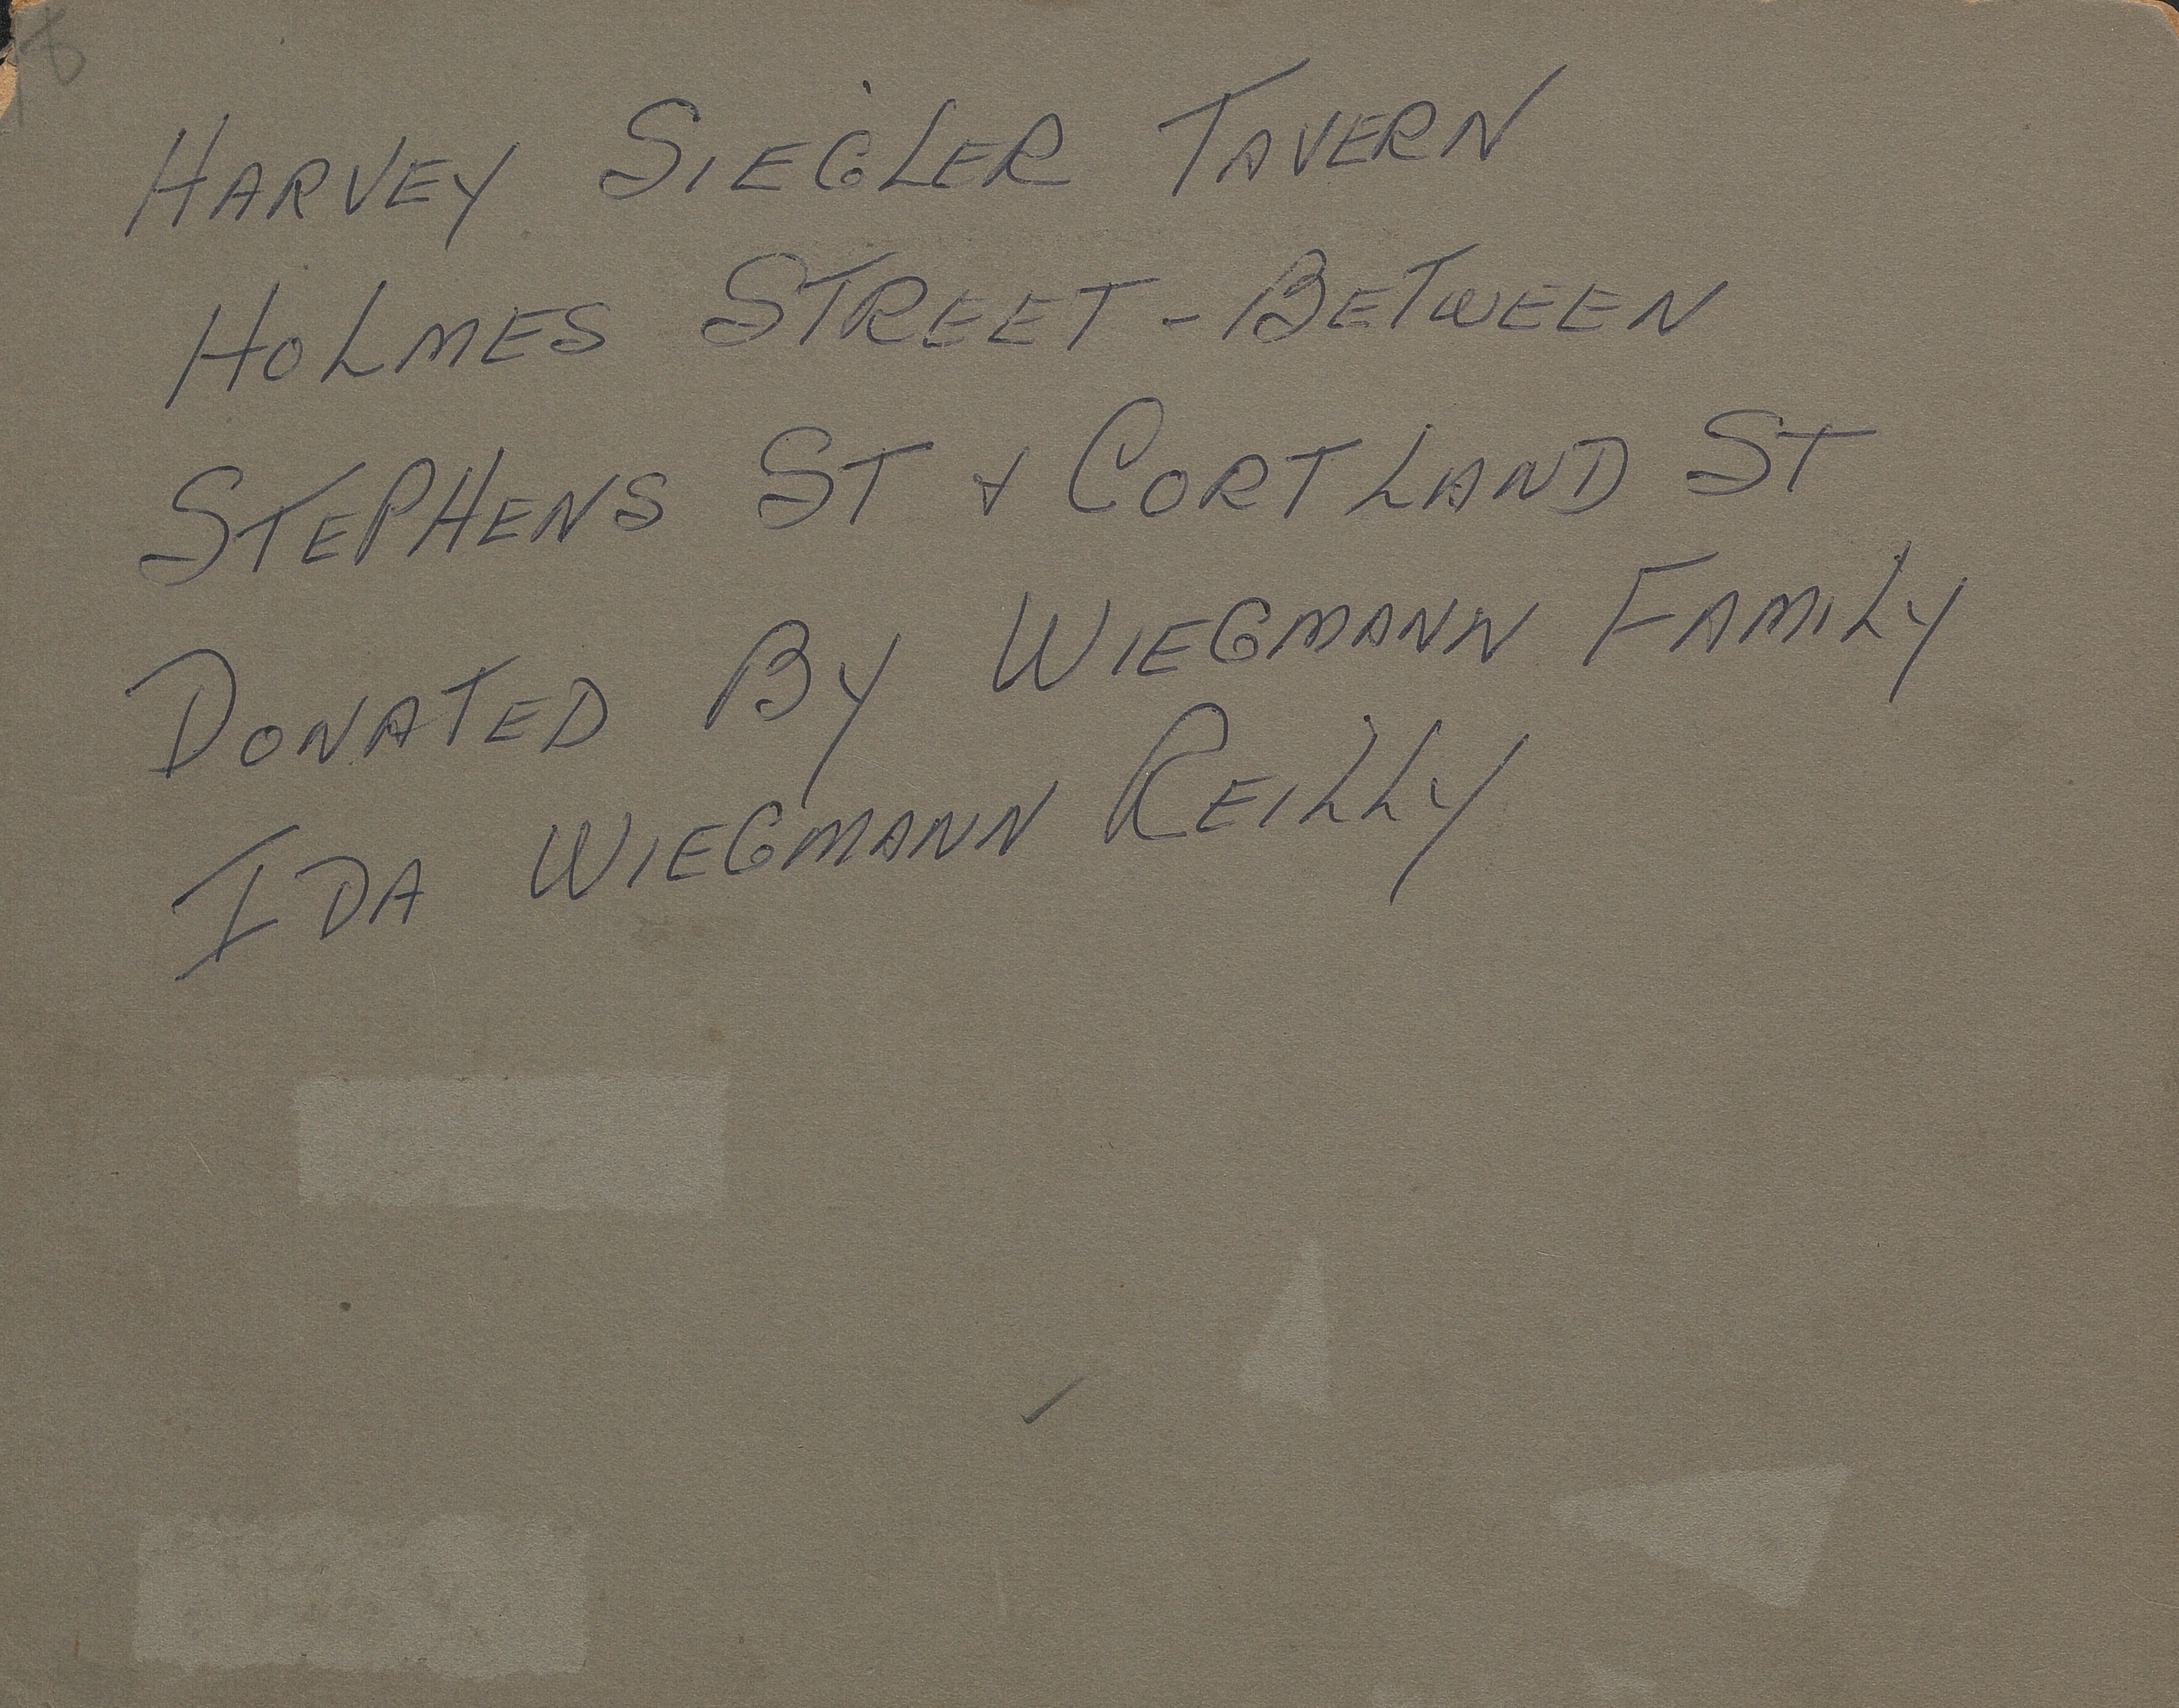 HARVEY SIEGLER TAVERN
HOLMES STREET - BETWEEN
STEPHENS ST & CORTLAND ST
DONATED BY WIEGMANN FAMILY
IDA WIEGMANN REILLY